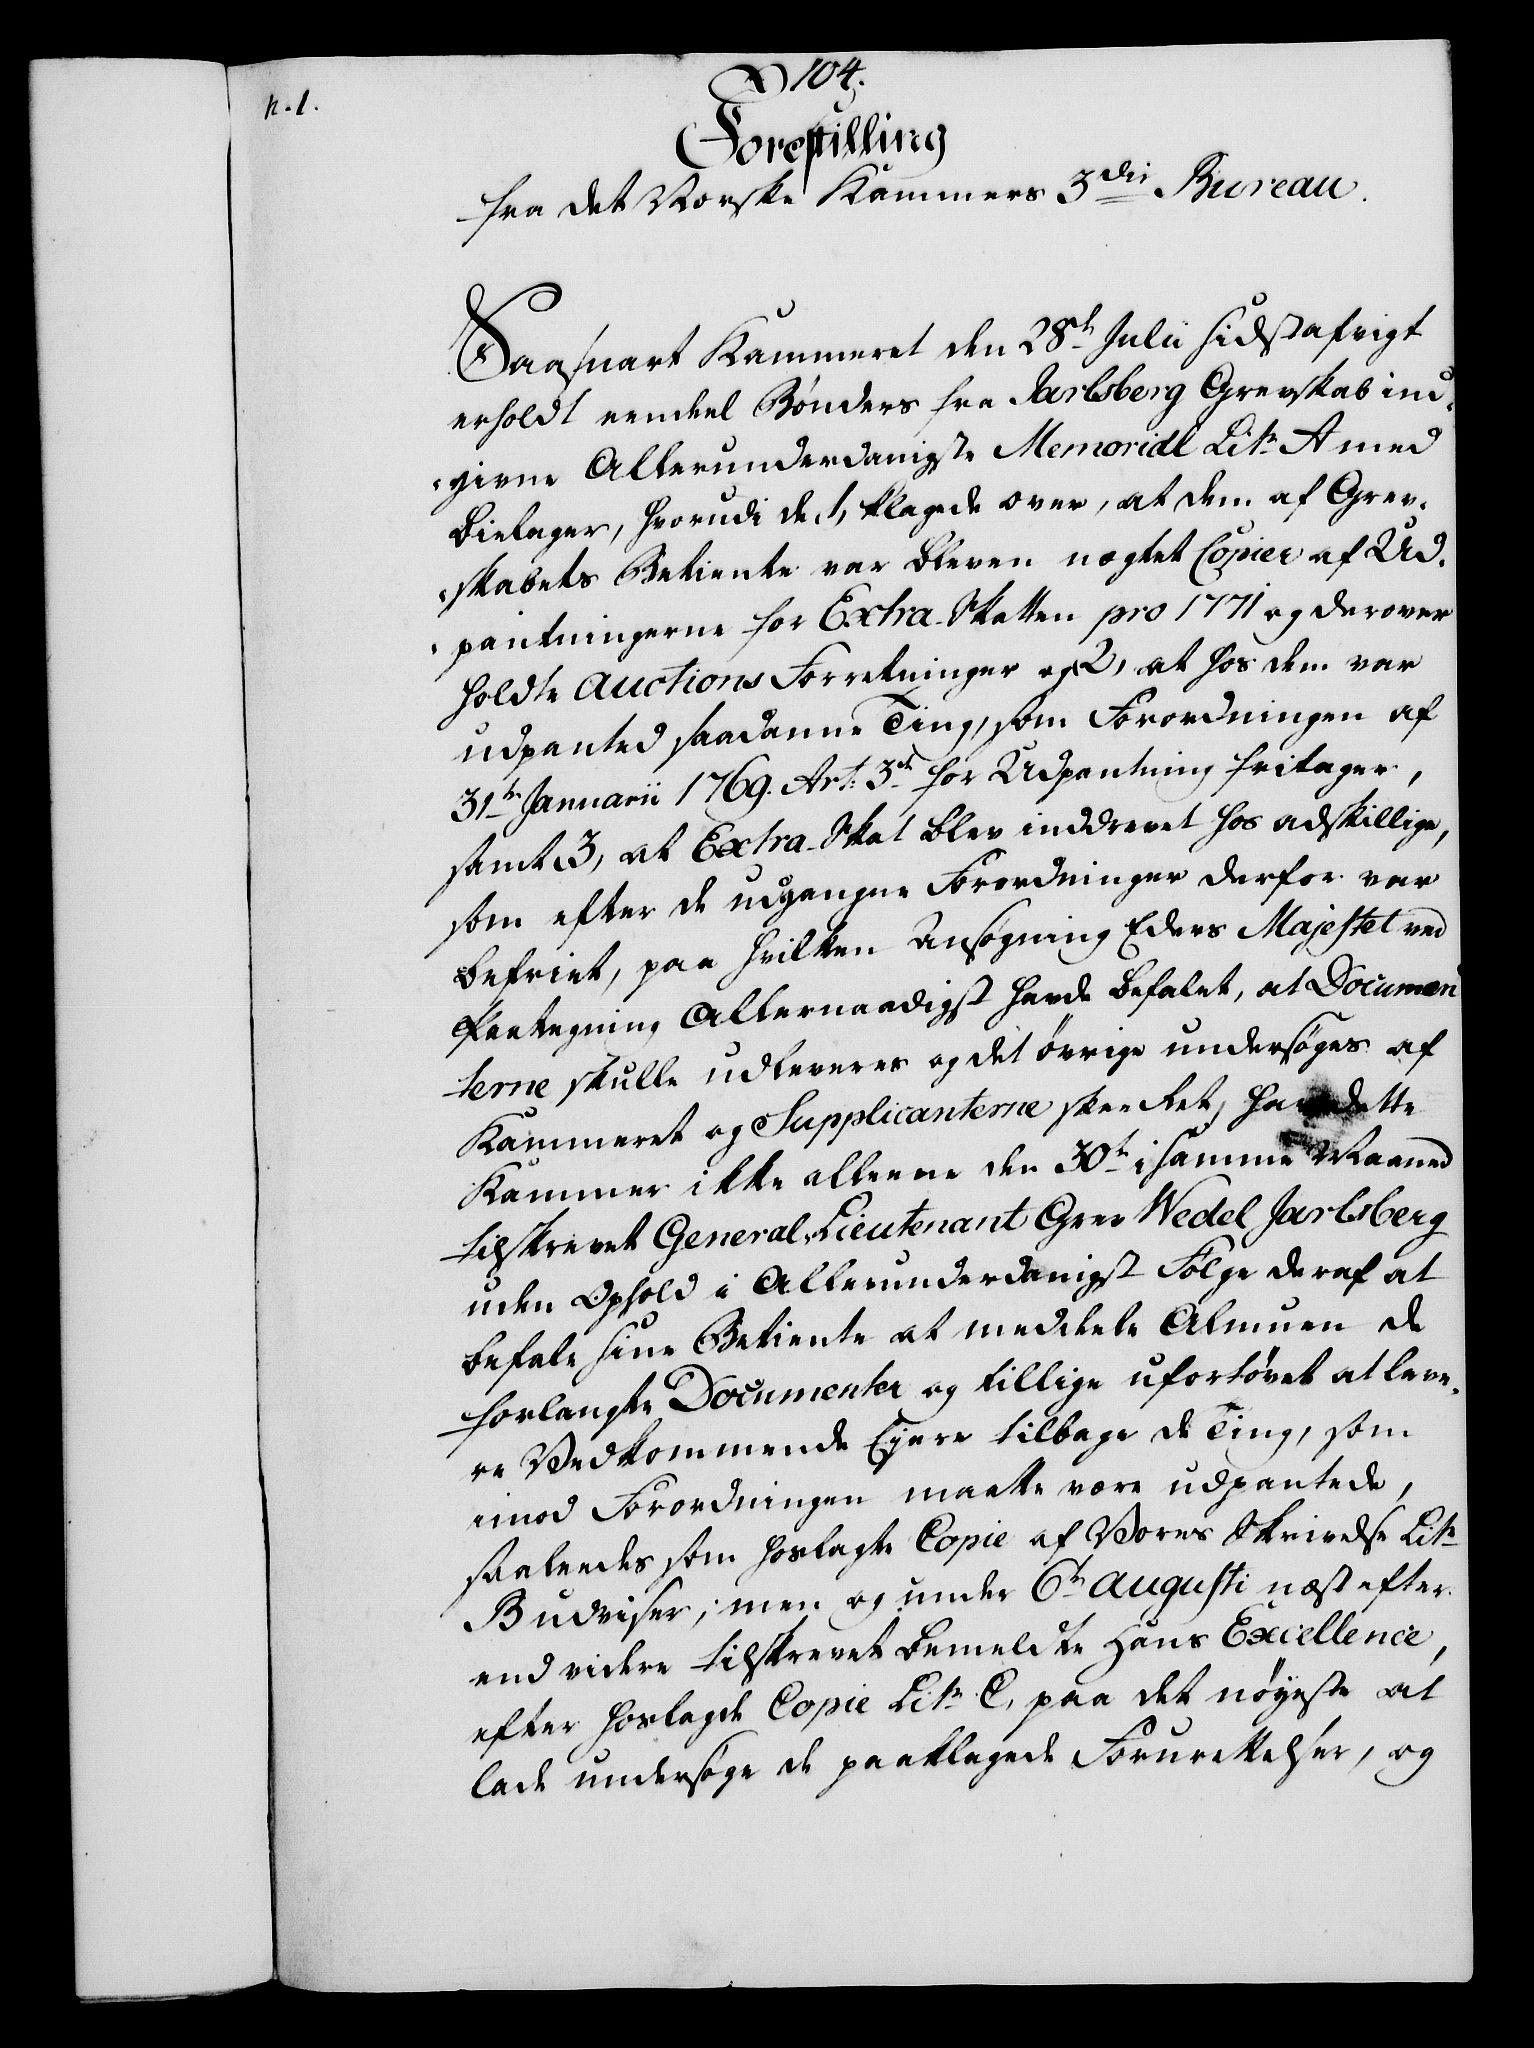 104.
n. 1.
Forestilling
fra det Norske Kammers 3die Bureau.
Saasnart Kammeret den 28de Julii sidstafvigt
erholdt eendeel Bønders fra Jarlsberg Grevskab ind-
givne Allerunderdanigste Memorial Litr A med
Bielager, hvorudi de 1, klagede over, at dem af Grev-
skabets Betiente var bleven nægtet Copier af Ud-
pantningerne for Extra-Skatten pro 1771 og derover
holdte Auctions Forretninger og 2, at hos dem var
udpanted saadanne Ting, som Forordningen af
31te Januarii 1769. Art: 3die for Udpantning fritager,
samt 3, at Extra-Skat blev inddrevet hos adskillige,
som efter de udgangne Forordninger derfor var
befriet, paa hvilken Ansøgning Eders Majestet ved
Paategning Allernaadigst havde befalet, at Documen
terne skulle udleveres og det øvrige undersøges af
Kammeret og Supplicanterne skee Ret, har dette
Kammer ikke alleene den 30te i samme Maaned
tilskrevet General-Lieutenant Grev Wedel Jarlsberg
uden Ophold i Allerunderdanigst Følge deraf at
befale sine Betiente at meddeele Almuen de
forlangte Documenter og tillige ufortøvet at leve-
re Vedkommende Eyere tilbage de Ting, som
imod Forordningen maatte være udpantede,
saaleedes som hoslagte Copie af Vores Skrivelse Litr
B udviser; men og under 6te Augusti næst efter
end videre tilskrevet bemeldte Hans Excellence,
efter hoslagde Copie Litr C, paa det nøyeste at
lade undersøge de paaklagede Forurettelser, og